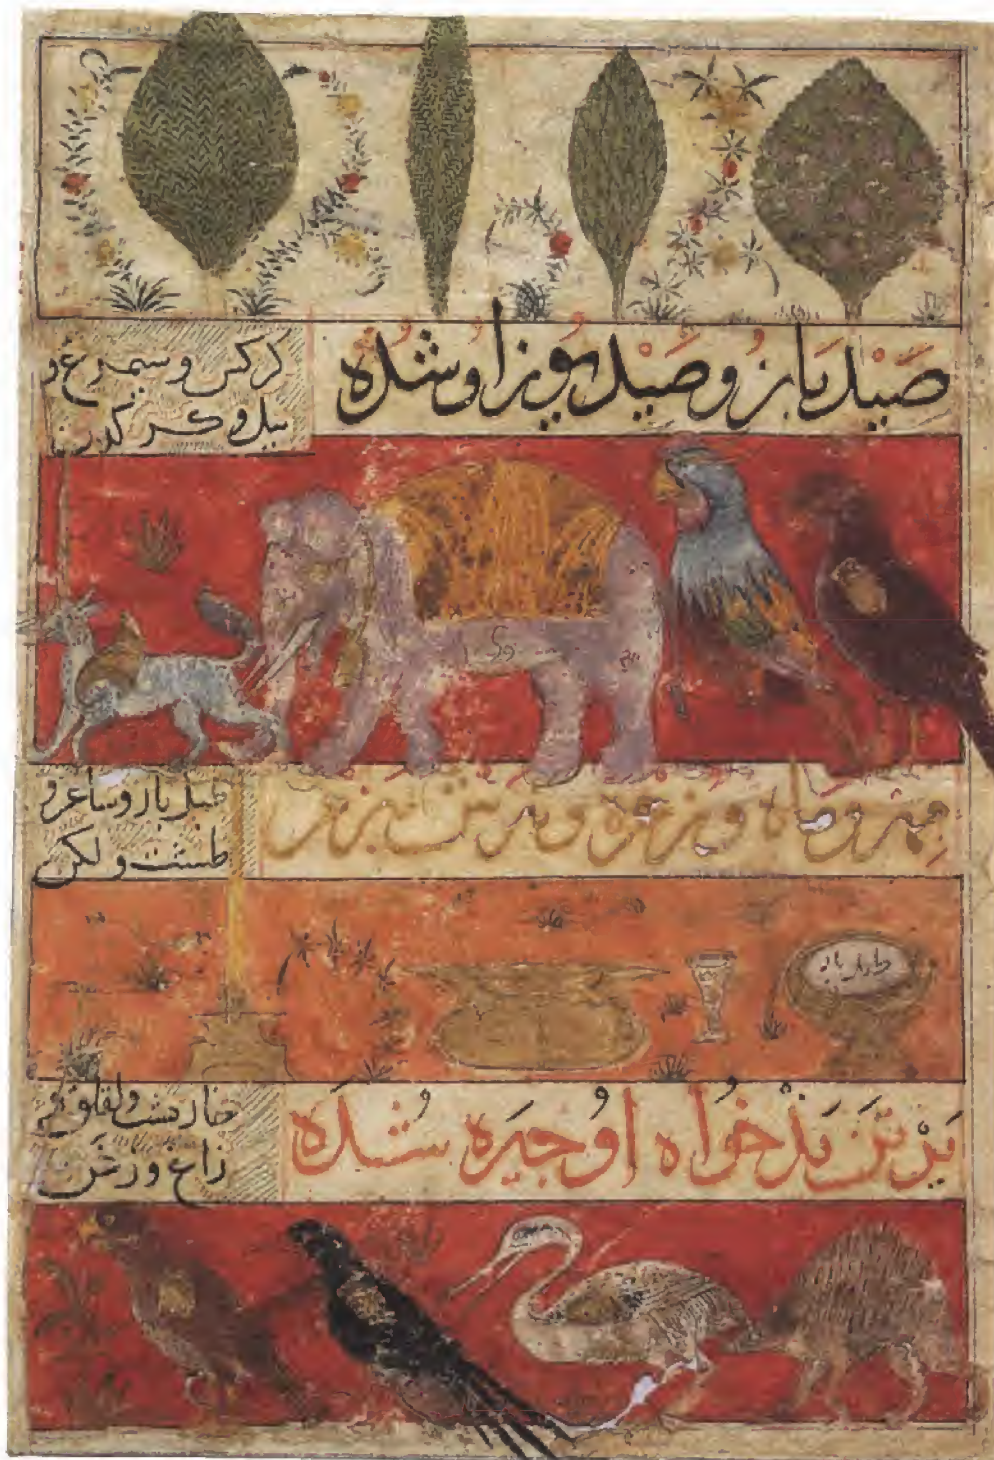 صَیْد بَاز و صَیْد یُوز اوُ شُدَه
کرکس و سیمرغ و
بیل و کرکدن
مِهر و مَاه و زهره و
طبل باز و ساغر و
طشت و لکن
طبل باز
بَرْ تَنِ بَدْخواه اوُ چیرَه شُدَه
خاربشت و لقلق و
زاغ و زغن